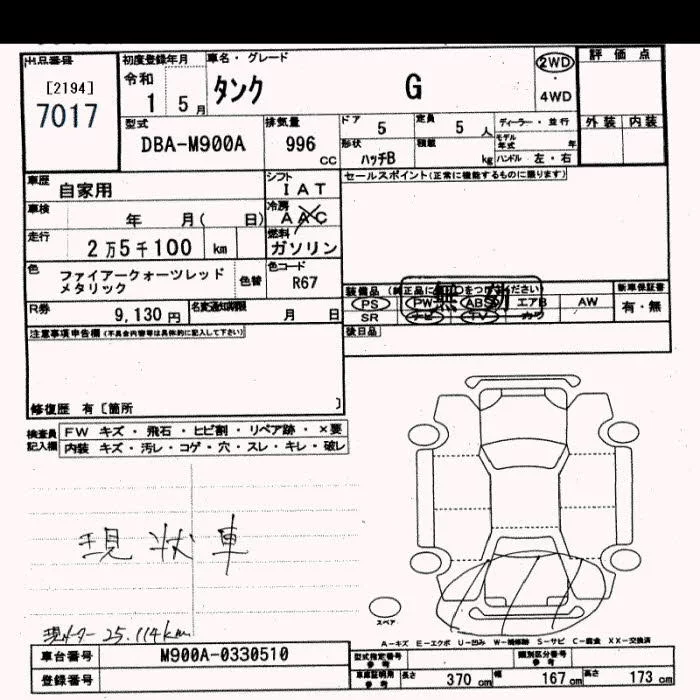 出品番号
[2194]
7017
初度登録年月
令和
1 5 月
車名・グレード
タンク G
2WD
4WD
評価点
外装 内装
型式
DBA-M900A
排気量
996
cc
ドア
5
定員
5 人
形状
ハッチB
積載
kg
ディーラー・並行
モデル年式 年
ハンドル 左・右
車歴
自家用
シフト
IAT
車検
年 月( 日)
冷房
AAC
走行
2万5千100 km
燃料
ガソリン
色
ファイアークォーツレッド
メタリック
色替
色コード
R67
R券
9,130 円
名変通知期限
月 日
セールスポイント(正常に機能するものに限ります)
PS PW ABS エアB AW
SR ナビ TV カワ
新車保証書
有・無
後日品
注意事項申告欄(不具合内容等は具体的に記入して下さい)
修復歴 有[箇所 ]
検査員
記入欄
FW キズ・飛石・ヒビ割・リペア跡・×要
内装 キズ・汚レ・コゲ・穴・スレ・キレ・破レ
現状車
現メーター 25,114km
スペア
A-キズ E-エクボ U-凹み W-補修跡 S-サビ C-腐食 XX-交換済
車台番号
M900A-0330510
登録番号
型式指定番号
参考
類別区分番号
参考
車庫証明用
参考
長さ 370 cm 幅 167 cm 高さ 173 cm